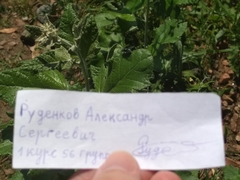 Руденков Александр
Сергеевич
1 курс 56 группа